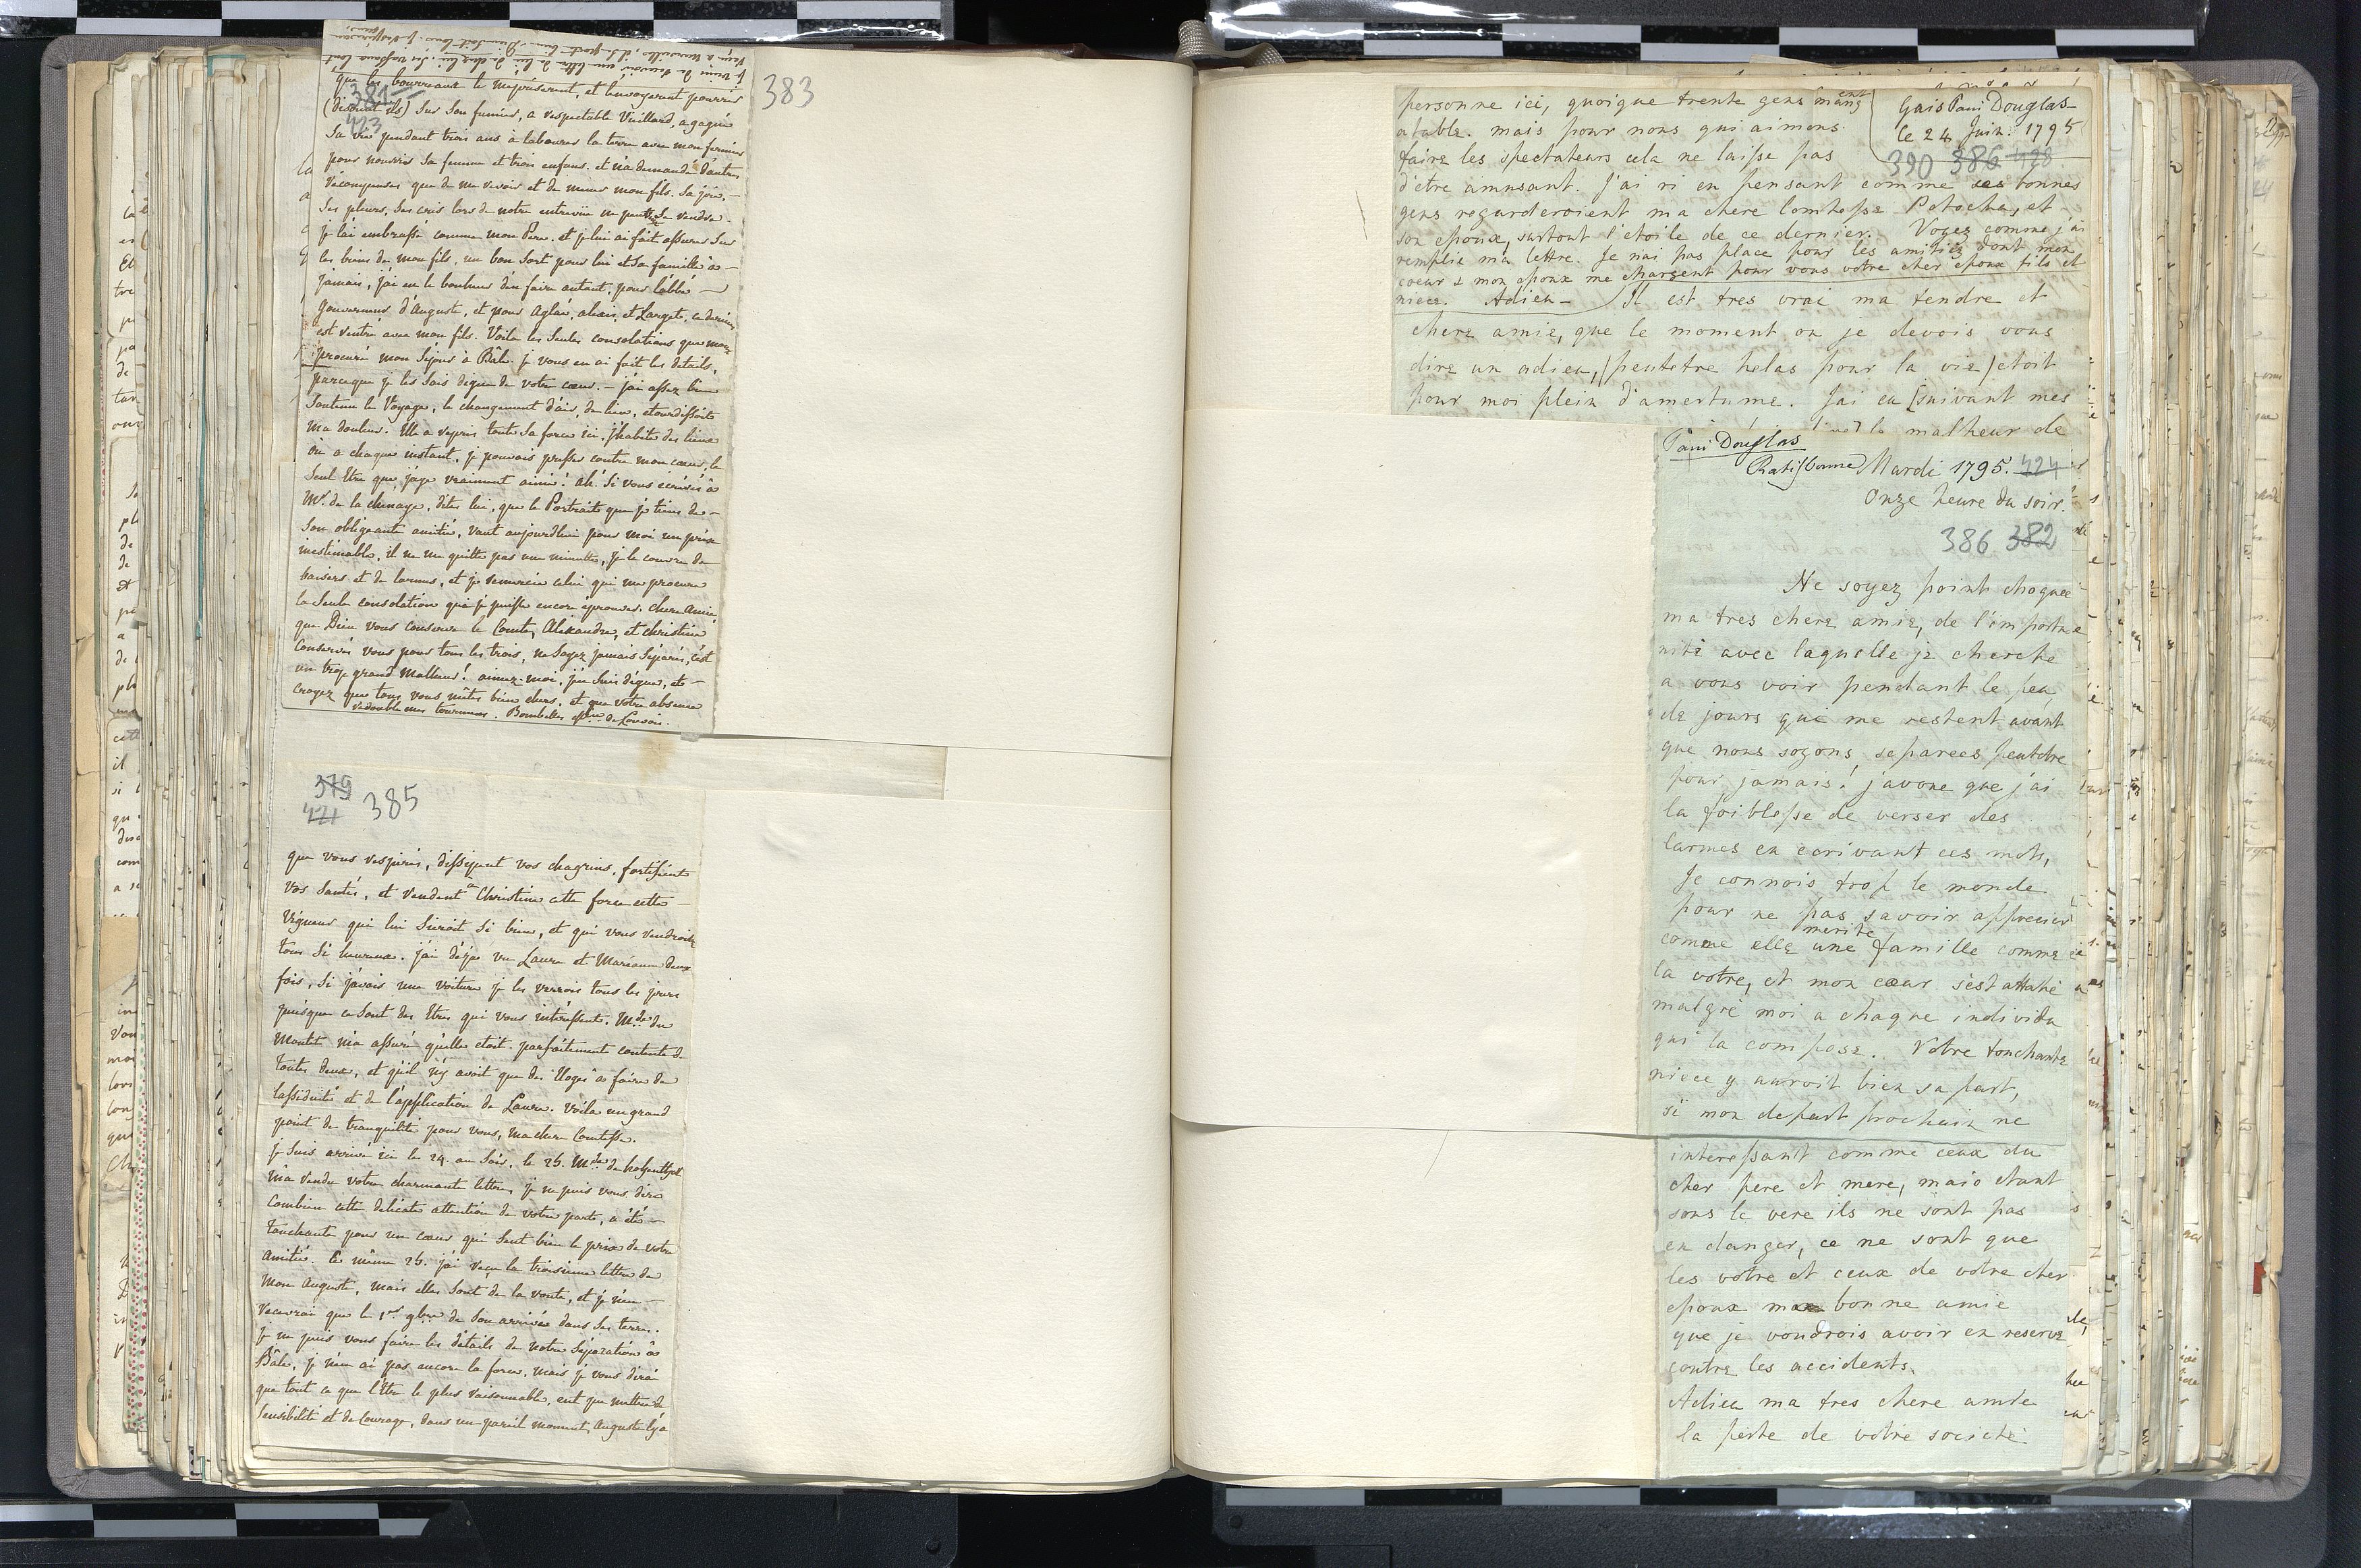 383
381
423
que les bourreaux le mépriserent, et l'envoyerent pourrir
(disoient ils) sur son fumier, ce respectable Vieillard, a gagné
sa vie pendant trois ans à labourer la terre avec mon fermier
pour nourrir sa femme et trois enfans. et n'a demandé d'autres
récompenses que de me revoir et de mener mon fils. Sa joie,
ses pleurs, ses cris lors de notre entrevüe ne peuvent se rendre
je l'ai embrassé comme mon Pere. et je lui ai fait assurer sur
les biens de mon fils, un bon sort pour lui et sa famille à
jamais, j'ai eu le bonheur d'en faire autant, pour l'abbé
Gouverneur d'Auguste, et pour Aglaé, alexis, et Larget, ce dernier
est rentré avec mon fils. Voila les seules consolations que m'aye
procuré mon séjour à Bâle. je vous en ai fait les détails,
parceque je les sais digne de votre cœur. – j'ai assez bien
soutenu le Voyage, le changement d'air, de lieu, etourdissoit
ma douleur. Elle a repris toute sa force ici. j'habite des lieux
où a chaque instant, je pouvois presser contre mon cœur, le
seul Etre que j'aye vraiment aimé! ah! si vous écrivés à
Mr. de la chenaye, dites lui, que le Portrait que je tiens de
son obligeante amitié, vaut aujourd'hui pour moi un prix
inestimable, il ne me quitte pas une minutte, je le couvre de
baisers et de larmes, et je remercie celui qui me procure
la seule consolation que je puisse encore éprouver. chere amie
que Dieu vous conserve le Comte, Alexandre, et christine
conservés vous pour tous les trois, ne soyez jamais séparés, c'est
un trop grand malheur! aimez-moi, j'en suis digne, et
croyez que tous vous m'êtes bien chers, et que votre absence
redouble mes tourmens. Bombelles
379
421
385
que vous respirés, dissipent vos chagrins, fortifient
vos santés, et rendent à Christine cette force cette
vigueur qui lui siéroit si bien, et qui vous rendroit
tous si heureux. j'ai déja vu Laure et Marianne deux
fois, si j'avois une voiture je les verrois tous les jours
puisque ce sont des Etres qui vous intéressent. Mde du
Montet m'a assuré qu'elle étoit parfaitement contente de
toutes deux, et qu'il n'y avoit que des Eloges à faire de
l'assiduité et de l'application de Laure. Voila un grand
point de tranquilité pour vous, ma chere Comtesse.
je suis arrivée ici le 24. au soir, le 25. Mde de
m'a rendu votre charmante lettre, je ne puis vous dire
combien cette délicate attention de votre part, a été
touchante pour un cœur qui sent bien le prix de votre
amitié. le même 25. j'ai reçu la troisieme lettre de
mon Auguste, mais elles sont de la route, et je n'en
recevrai que le 1er 9bre de son arrivée dans ses terres.
je ne puis vous faire les détails de notre séparation à
Bâle, je n'en ai pas encore la force, mais je vous dirai
que tout ce que l'Etre le plus raisonnable, eut pu mettre de
sensibilité et de courage, dans un pareil moment, Auguste l'y a
personne ici, quoique trente gens mangent
a table. mais pour nous qui aimons
faire les spectateurs cela ne laisse pas
Gais Pani Douglas
le 24 Juin. 1795
390 386 428
d'etre amusant. J'ai ri en pensant comme ces bonnes
gens regarderoient ma chere Comtesse Potocka, et
son epoux, surtout l'etoile de ce dernier. Voyez comme j'ai
remplie ma lettre. Je n'ai pas place pour les amitiés dont mon
coeur & mon epoux me chargent pour vous votre cher epoux fils et
niece. Adieu – Il est tres vrai ma tendre et
chere amie, que le moment ou je devois vous
dire un adieu, (peutetre helas pour la vie) etoit
pour moi plein d'amertume. J'ai eu [suivant mes
le malheur de
Pani Douglas
Ratisbonne Mardi 1795. 424
Onze heure du soir.
386 382
Ne soyez point choquée
ma tres chere amie, de l'importu
nité avec laquelle je cherche
a vous voir pendant le peu
de jours qui me restent avant
que nous soyons separées peutetre
pour jamais! j'avoue que j'ai
la foiblesse de verser des
larmes en ecrivant ces mots,
Je connois trop le monde
pour ne pas savoir apprecier
comme elle merite une famille comme
la votre, et mon cœur s'est attaché
malgré moi a chaque individu
qui la compose. Votre touchante
niece y auroit bien sa part,
si mon depart prochain ne
interessant comme ceux du
cher pere et mere, mais etant
sous le vere ils ne sont pas
en danger, ce ne sont que
les votre et ceux de votre cher
epoux ma bonne amie
que je voudrois avoir en reserve
contre les accidents.
Adieu ma tres chere amie
la perte de votre societé